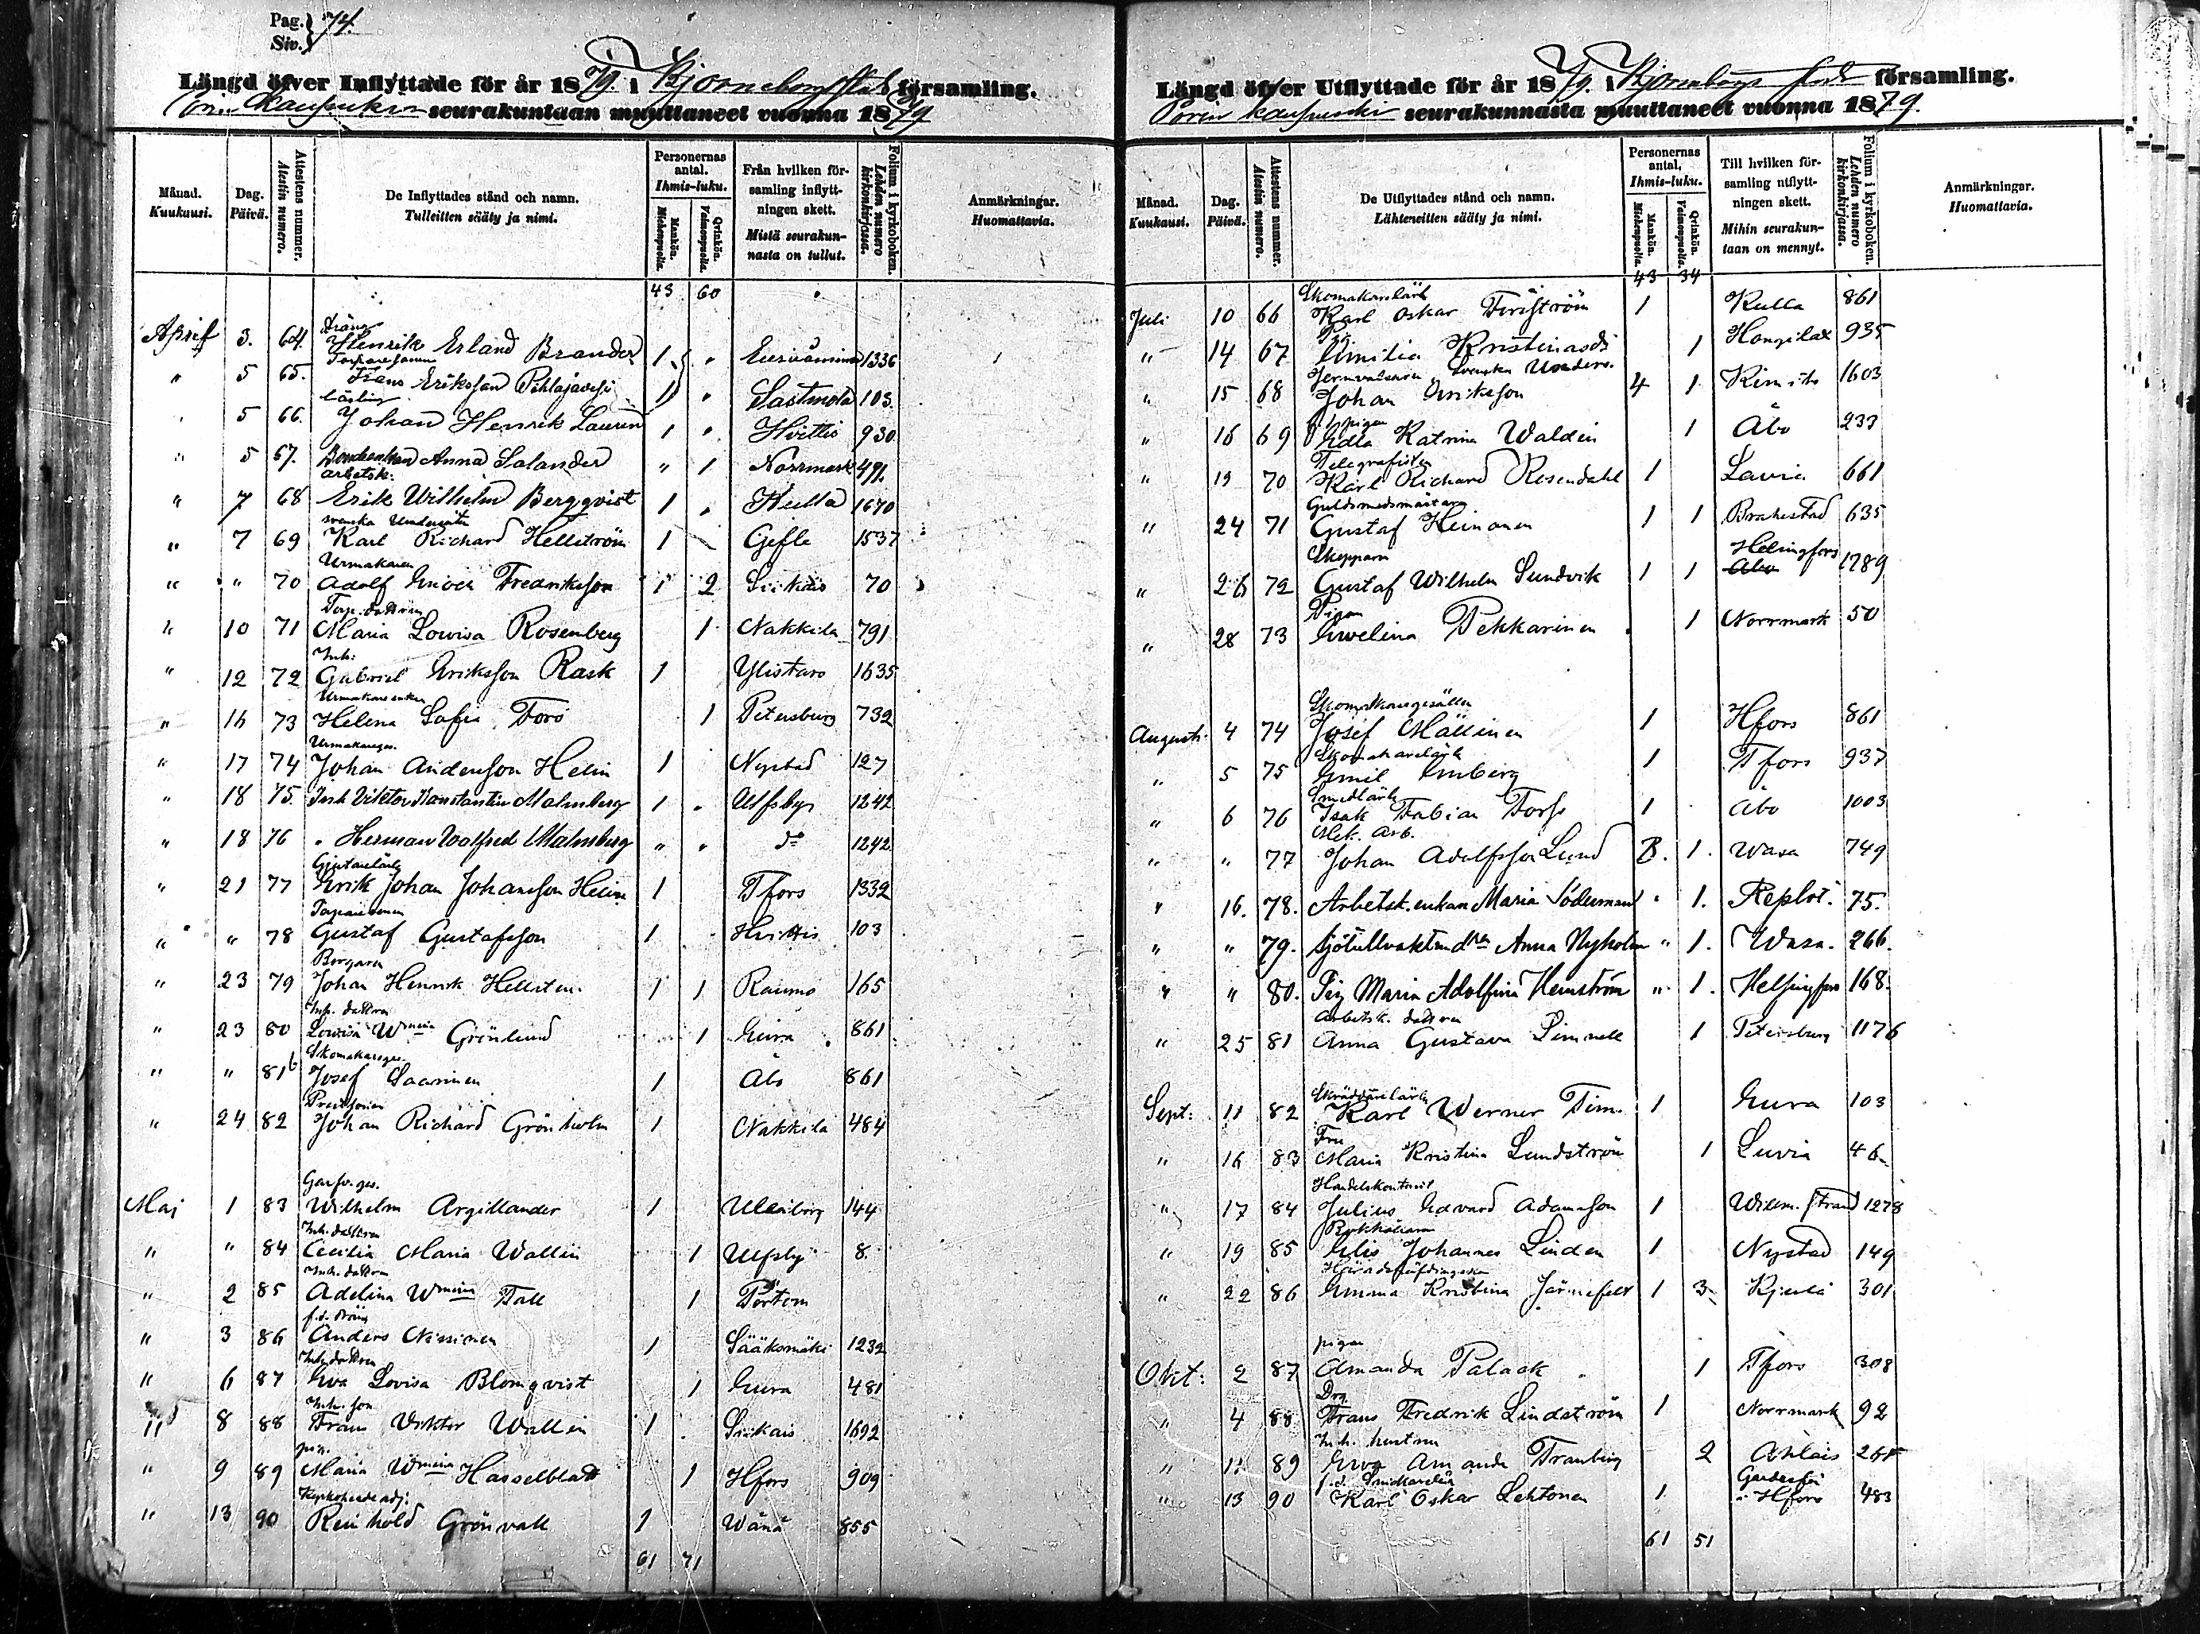 Pag. } 74.
Siv.
Längd öfver Inflyttade för år 1879. i Björneborgs stads församling.
Porin kaupunkin seurakuntaan muuttaneet vuonna 1879
Månad. Kuukausi. Dag. Päivä. Attestens nummer. Atestin numero. De Inflyttades stånd och namn. Tulleitten sääty ja nimi. Personernas antal. Ihmis-luku. Mankön. Miehenpuolia. Qvinkön. Vaimonpuolia. Från hvilken församling inflyttningen skett. Mistä seurakunnasta on tullut. Folium i kyrkoboken. Lehden numero kirkonkirjassa. Anmärkningar. Huomattavia.
43 60
April 3. 64. Dräng Henrik Erland Brander 1 " Euraåminne 1336
" 5 65. Torparesonen Frans Eriksson Pihlajavesi 1 " Sastmola 103.
" 5 66. Johan Henrik Laurén 1 " Hvittis 930
" 5 67. Anna Salander " 1 Norrmark 491
" 7 68 Arbetsk. Erik Wilhelm Bergqvist 1 " Kulla 1670
" 7 69 svenska Undersåten Karl Richard Hellström 1 Gefle 1537
" " 70 Urmakaren Adolf Enoch Fredriksson 1 2 Siikais 70
" 10 71 Torp. dottren Maria Lowisa Rosenberg 1 Nakkila 791
" 12 72 Inh: Gabriel Eriksson Rask 1 Ylistaro 1635
" 16 73 Urmakareenkan Helena Sofia Fors 1 Petersburg 732
" 17 74 Urmakareges. Johan Andersson Helin 1 Nystad 127
" 18 75. Inh Viktor Konstantin Malmberg 1 " Ulfsby 1242
" 18 76 " Herman Wolfred Malmberg " " do 1242
" 21 77 Gjutarelärl. Erik Johan Johansson Helin 1 Tfors 1332
" " 78 Torparesonen Gustaf Gustafsson 1 Hvittis 103
" 23 79 Borgaren Johan Henrik Hellsten 1 1 Raumo 165
" 23 80 Inh. dottren Lowisa Wmina Grönlund 1 Eura 861
" " 81b Skomakareges. Josef Saarinen 1 Åbo 861
" 24 82 Johan Richard Grönholm 1 Nakkila 484
Maj 1 83 Garfv. ges. Wilhelm Argillander 1 Uleåborg 144
" " 84 Inh. dottren Cecilia Maria Wallin 1 Ulfsby 8.
" 2 85 Inh. dottren Adelina Wmina Tall 1 Pörtom
" 3 86 f.d. dräng Anders Nissinen 1 Sääksmäki 1232
" 6 87 Inh. dottren Ewa Lovisa Blomqvist 1 Eura 481
" 8 88 Inh. son Frans Viktor Wallin 1 Siikais 1692
" 9 89 pig. Maria Wmina Hasselblatt 1 Hfors 909
" 13 90 Kyrkoherde adj: Reinhold Grönvall 1 Wånå 855
61 71
Längd öfver Utflyttade för år 1879. i Björneborgs stads församling.
Porin kaupunki seurakunnasta muuttaneet vuonna 1879.
Månad. Kuukausi. Dag. Päivä. Attestens nummer. Atestin numero. De Utflyttades stånd och namn. Lähteneitten sääty ja nimi. Personernas antal. Ihmis-luku. Mankön. Miehenpuolia. Qvinkön. Vaimonpuolia. Till hvilken församling utflyttningen skett. Mihin seurakuntaan on mennyt. Folium i kyrkoboken. Lehden numero kirkonkirjassa. Anmärkningar. Huomattavia.
43 34
Juli 10 66 Skomakarelärl Karl Oskar 1 Kulla 861
" 14 67 Pig. Emilia Kristinasdr 1 Hongilax 935
" 15 68 Svenska Unders. Johan Eriksson 4 1 Kimito 1603
" 16 69 pigan Edla Katrina Waldén 1 Åbo 233
" 19 70 Telegrafisten Karl Richard Rosendahl 1 Lavia 661
" 24 71 Guldsmedsmästaren Gustaf Heinonen 1 1 Brahestad 635
" 26 72 Skepparen Gustaf Wilhelm Sundvik 1 1 Helsingfors Åbo 1789
" 28 73 Pigan Ewelina Pekkarinen 1 Norrmark 50
Augusti. 4 74 Skomakaregesällen Josef Mällinen 1 Hfors 861
" 5 75 Skomakarelärl Emil Enberg 1 Tfors 937
" 6 76 Smedlärl Isak Fabian Forss 1 Åbo 1003
" " 77 Mek. Arb. Johan Adolfsson Lund 3. 1. Wasa 749
" 16. 78. Arbetsk. enkan Maria Söderman " 1. Replot. 75.
" " 79. Sjötullvaktm dr Anna Nyholm " 1. Wasa. 266.
" " 80. Pig Maria Adolfina Hemström " 1. Helsingfors 168.
" 25 81 Arbetsk. dottren Anna Gustava Limnell 1 Petersburg 1176
Sept: 11 82 Skräddarelärl Karl Werner Tim. 1 Eura 103
" 16 83 Fru Maria Kristina Lundström 1 Luvia 46
" 17 84 Handelskontorist Julius Edvard Adamsson 1 Willm. strand 1278
" 19 85 Bokhållaren Elis Johannes Linden 1 Nystad 149
" 22 86 Häradshöfdingskan Emma Kristina Järnefelt 1 3 Kjulo 301
Okt: 2 87 pigan Amanda Palack 1 Tfors 308
" 4 88 Drg Frans Fredrik Lindström 1 Norrmark 92
" 11 89 Inh. hustrun Ewa Amanda Tranberg 2 Ahlais 265
" 13 90 Karl Oskar Lehtonen 1 i Hfors 483
61 51